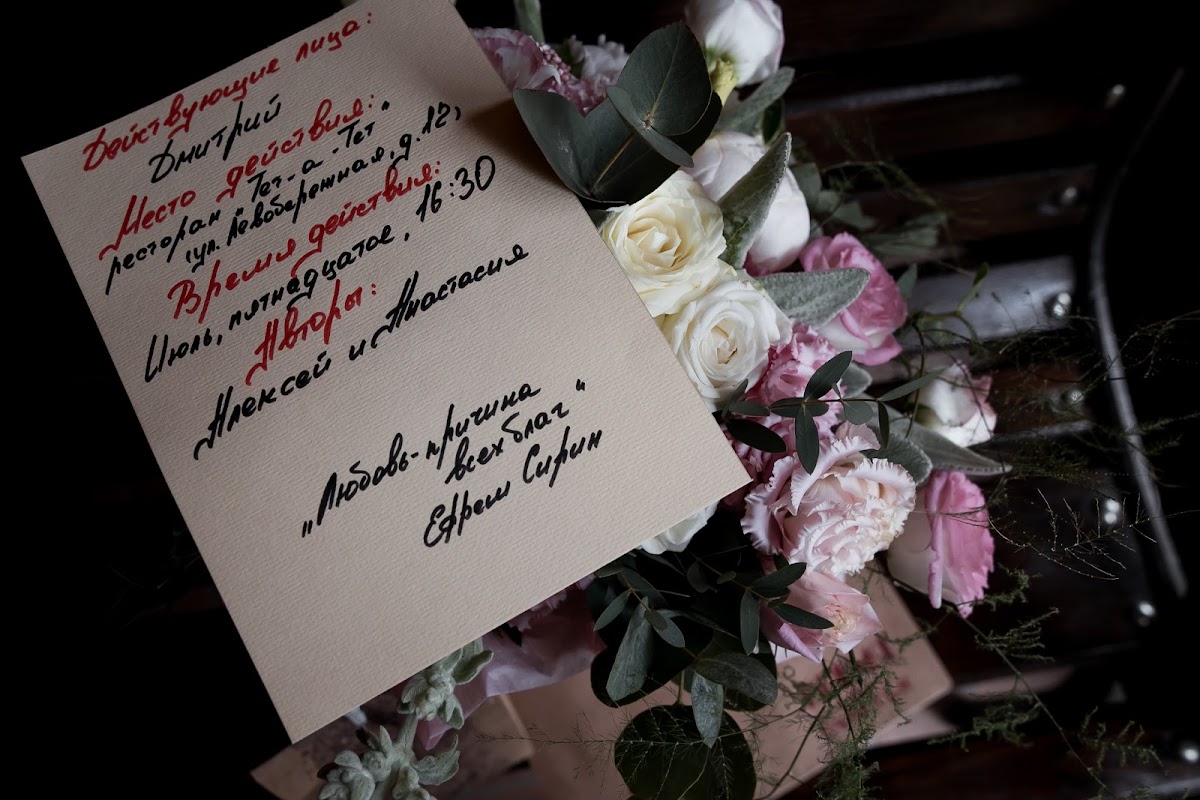 Действующие лица:
Дмитрий
Место действия:
ресторан "Тет-а-Тет"
(ул. Левобережная, д.12,
Время действия:
Июль, пятнадцатое, 16:30
Авторы:
Алексей и Анастасия
"Любовь-причина
всех благ"
Ефрем Сирин